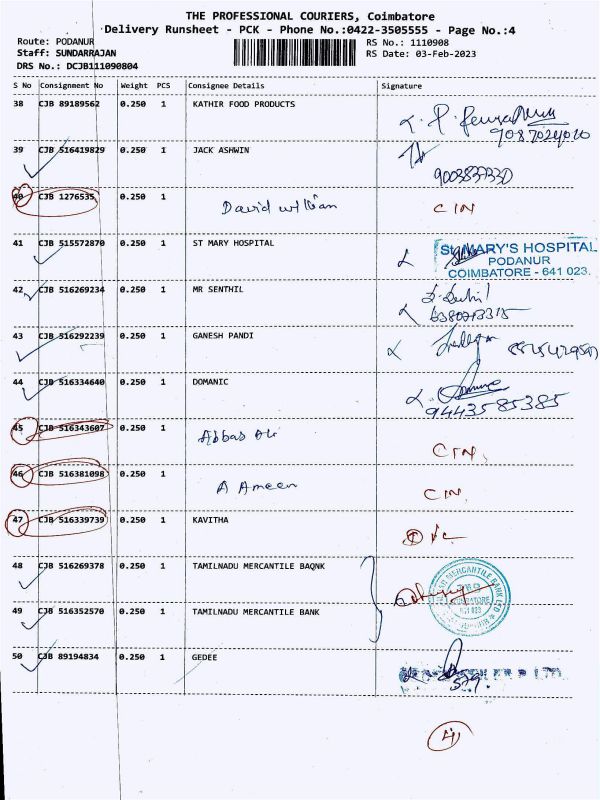 THE PROFESSIONAL COURIERS, Coimbatore
Delivery Runsheet - PCK - Phone No.:0422-3505555 - Page No.:4
Route: PODANUR
Staff: SUNDARRAJAN
DRS No.: DCJB111090804
RS No.: 1110908
RS Date: 03-Feb-2023
S No Consignment No Weight PCS Consignee Details Signature
38 CJB 89189562 0.250 1 KATHIR FOOD PRODUCTS
9087024020
39 CJB 516419829 0.250 1 JACK ASHWIN
9003837330
40 CJB 1276535 0.250 1 David william CIN
41 CJB 515572870 0.250 1 ST MARY HOSPITAL
St. MARY'S HOSPITAL
PODANUR
COIMBATORE - 641 023.
42 CJB 516269234 0.250 1 MR SENTHIL
43 CJB 516292239 0.250 1 GANESH PANDI
44 CJB 516334640 0.250 1 DOMANIC
9443585385
45 CJB 516343607 0.250 1 Abbas Ali CIN
46 CJB 516381098 0.250 1 A Ameen CIN
47 CJB 516339739 0.250 1 KAVITHA
48 CJB 516269378 0.250 1 TAMILNADU MERCANTILE BAQNK
49 CJB 516352570 0.250 1 TAMILNADU MERCANTILE BANK
50 CJB 89194834 0.250 1 GEDEE